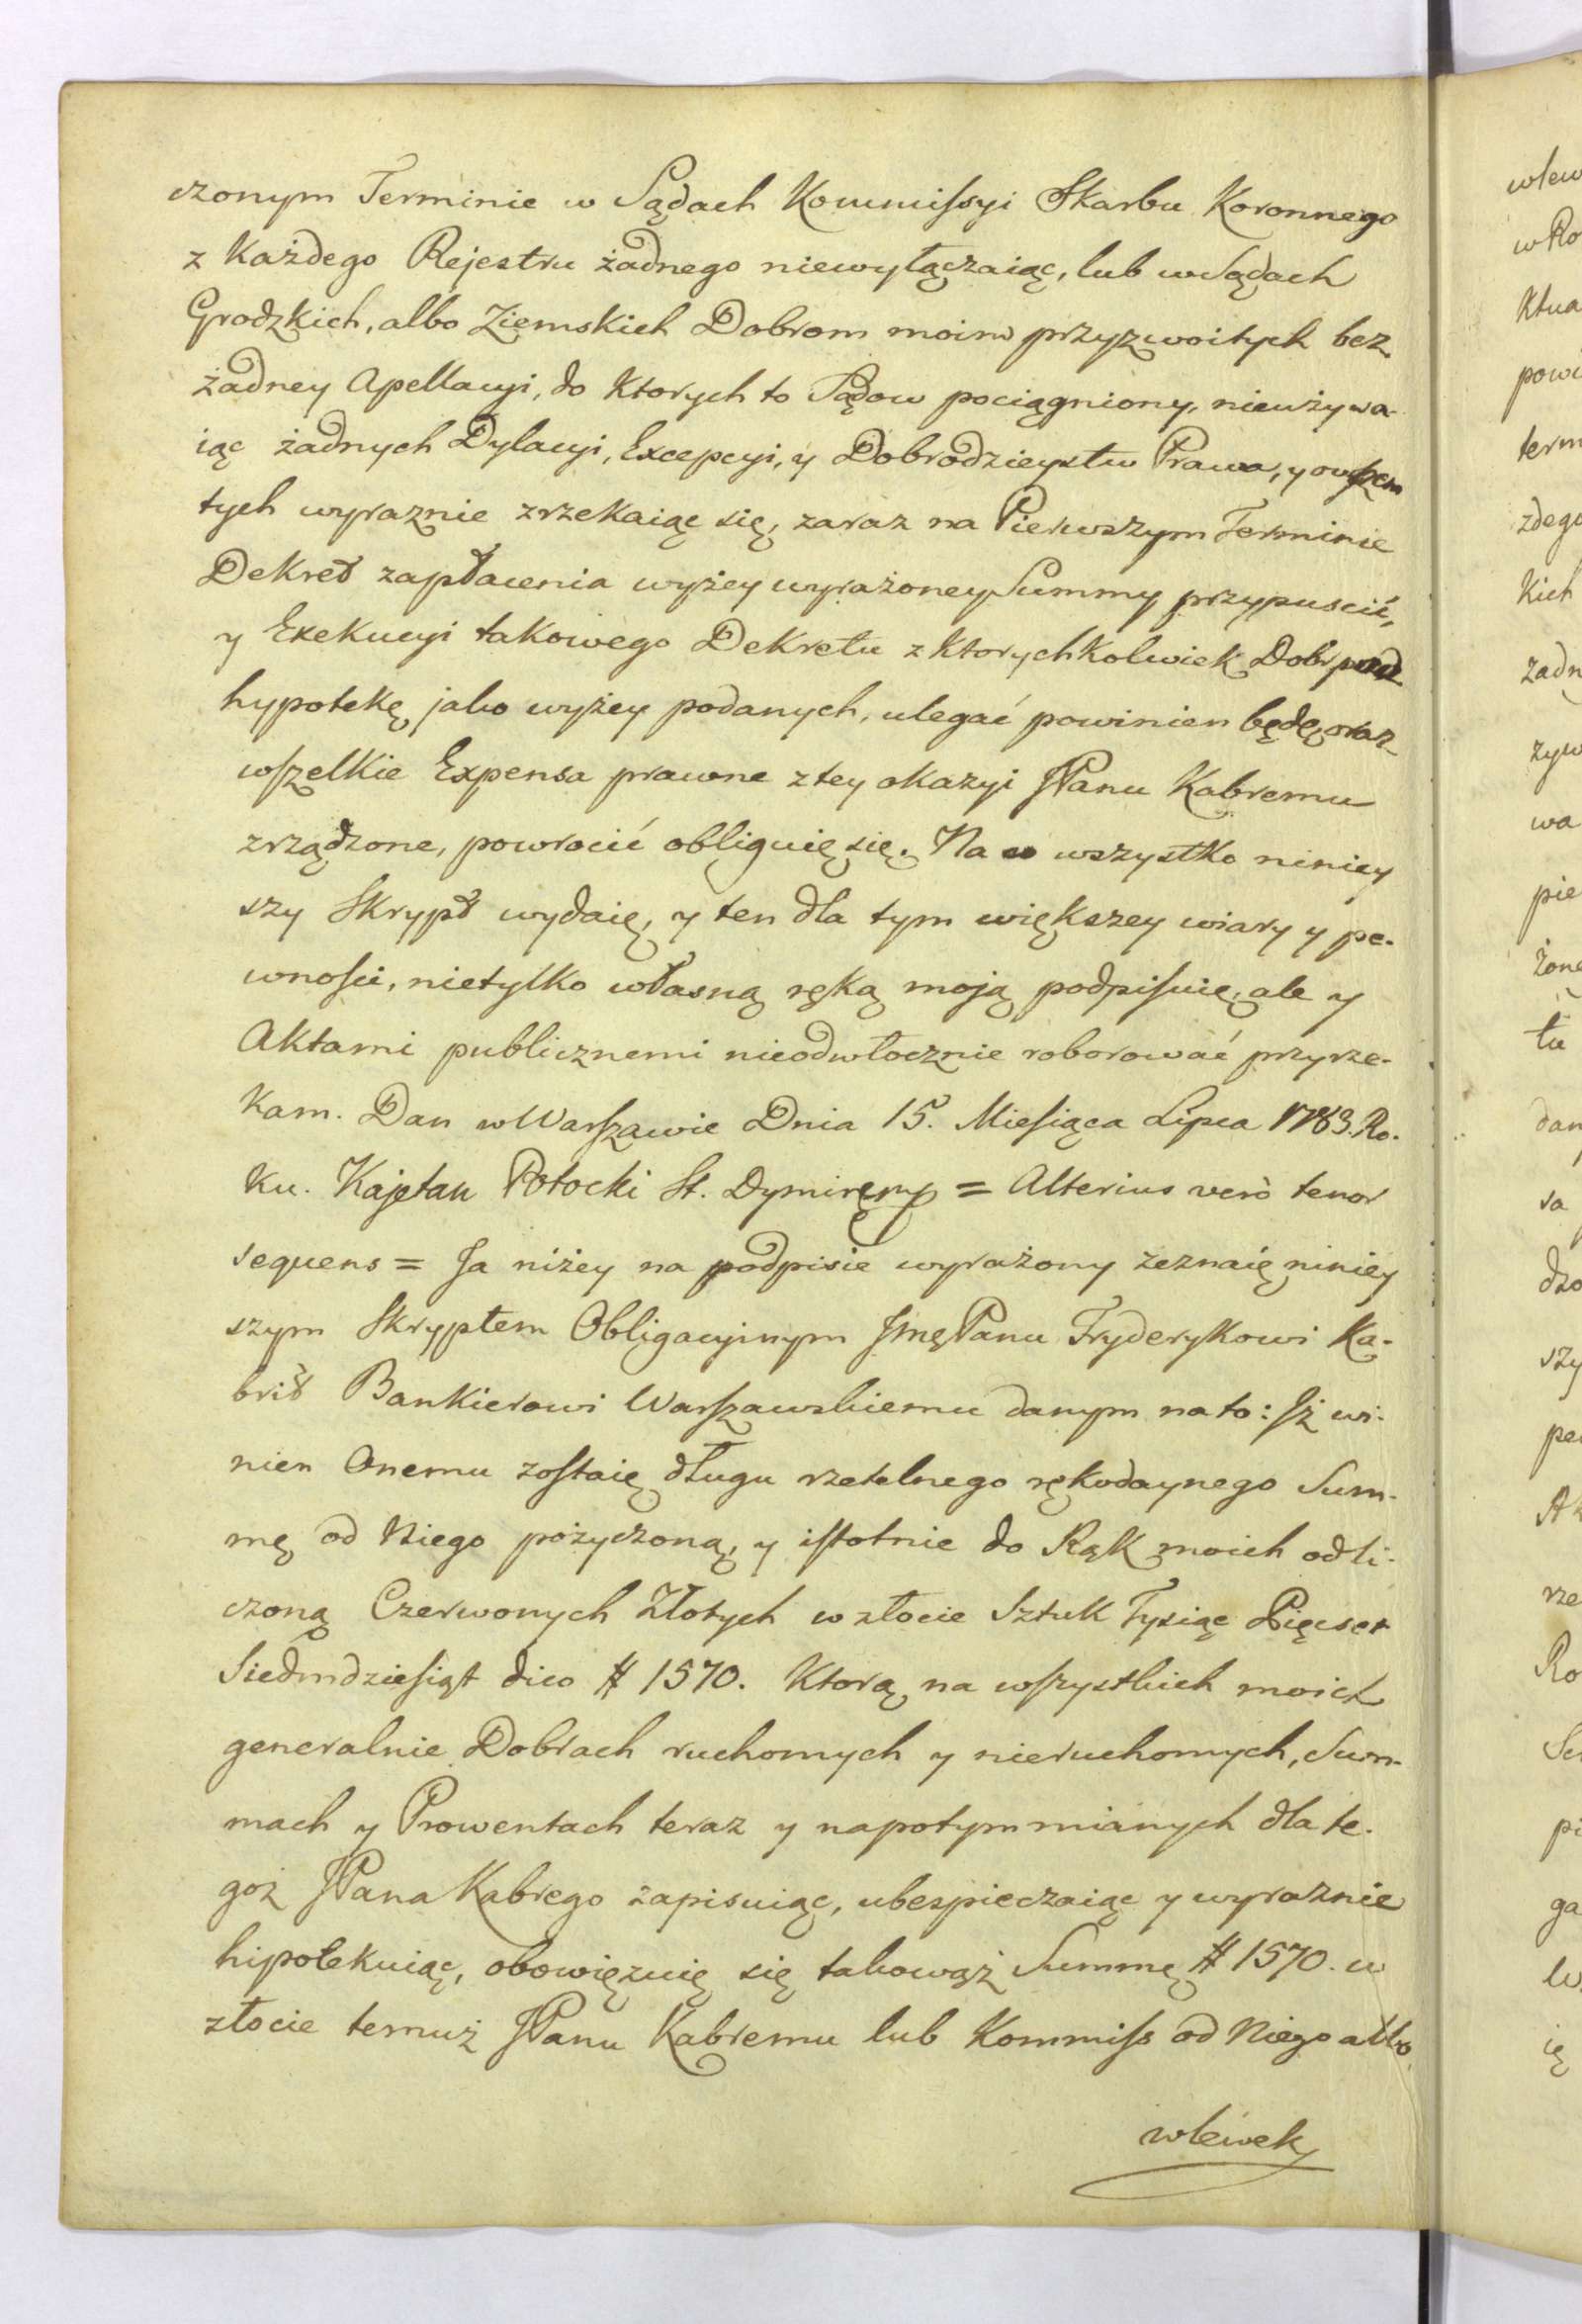 czonym Terminie w Sądach Kommissyi Skarbu Koronnego
z Każdego Rejestru żadnego niewyłączaiąc, lub w Sądach
Grodzkich, albo Ziemskich Dobrom moim przyzwoitych bez
żadney Apellacyi, do Ktorych to Sądow pociągniony, nieużywa-
iąc żadnych Dylacyi, Excepcyi, y Dobrodzieystw Prawa, y owszem
tych wyraznie zrzekaiąc się, zaraz na Pierwszym Terminie
Dekret zapłacenia wyżey wyrażoney Summy przypuscić,
y Exekucyi takowego Dekretu z Ktorychkolwiek Dobr pod
hypotekę jako wyżey podanych, ulegać powinien będę, oraz
wszelkie Expensa prawne z tey okazyi JPanu Kabremu
zrządzone, powrocić obliguię się. Na co wszystko niniey
szy Skrypt wydaię, y ten dla tym większey wiary y pe-
wności, nietylko własną ręką moją podpisuię, ale y
Aktami publicznemi nieodwłocznie roborować przyrze-
kam. Dan w Warszawie Dnia 15. Miesiąca Lipca 1783. Ro-
ku. Kajetan Potocki St. Dymirs mp = Alterius verò tenor
sequens = Ja niżey na podpisie wyrażony zeznaię niniey
szym Skryptem Obligacyinym Jmę Panu Fryderykowi Ka-
brit Bankierowi Warszawskiemu danym na to: Jż wi-
nien Onemu zostaię długu rzetelnego rękodaynego Sum-
mę od Niego pożyczoną, y istotnie do Rąk moich odli-
czoną Czerwonych Złotych w złocie Sztuk Tysiąc Pięcset
Siedmdziesiąt dico # 1570. Ktorą na wszystkich moich
generalnie Dobrach ruchomych y nieruchomych, Sum-
mach y Prowentach teraz y napotym mianych dla te-
goż JPana Kabrego zapisuiąc, ubespieczaiąc y wyraznie
hipotekuiąc, obowięzuię się takowąż Summę # 1570. w
złocie temuż JPanu Kabremu lub Kommiss od Niego albo
wlewek
wlew
w Ro
Ktua
powi
term
zdego
kich
żadn
zyw
wa
pie
żone
tu
dan
sa
dzo
szy
pe
Ak
rze
Ro
pi
ga
ię